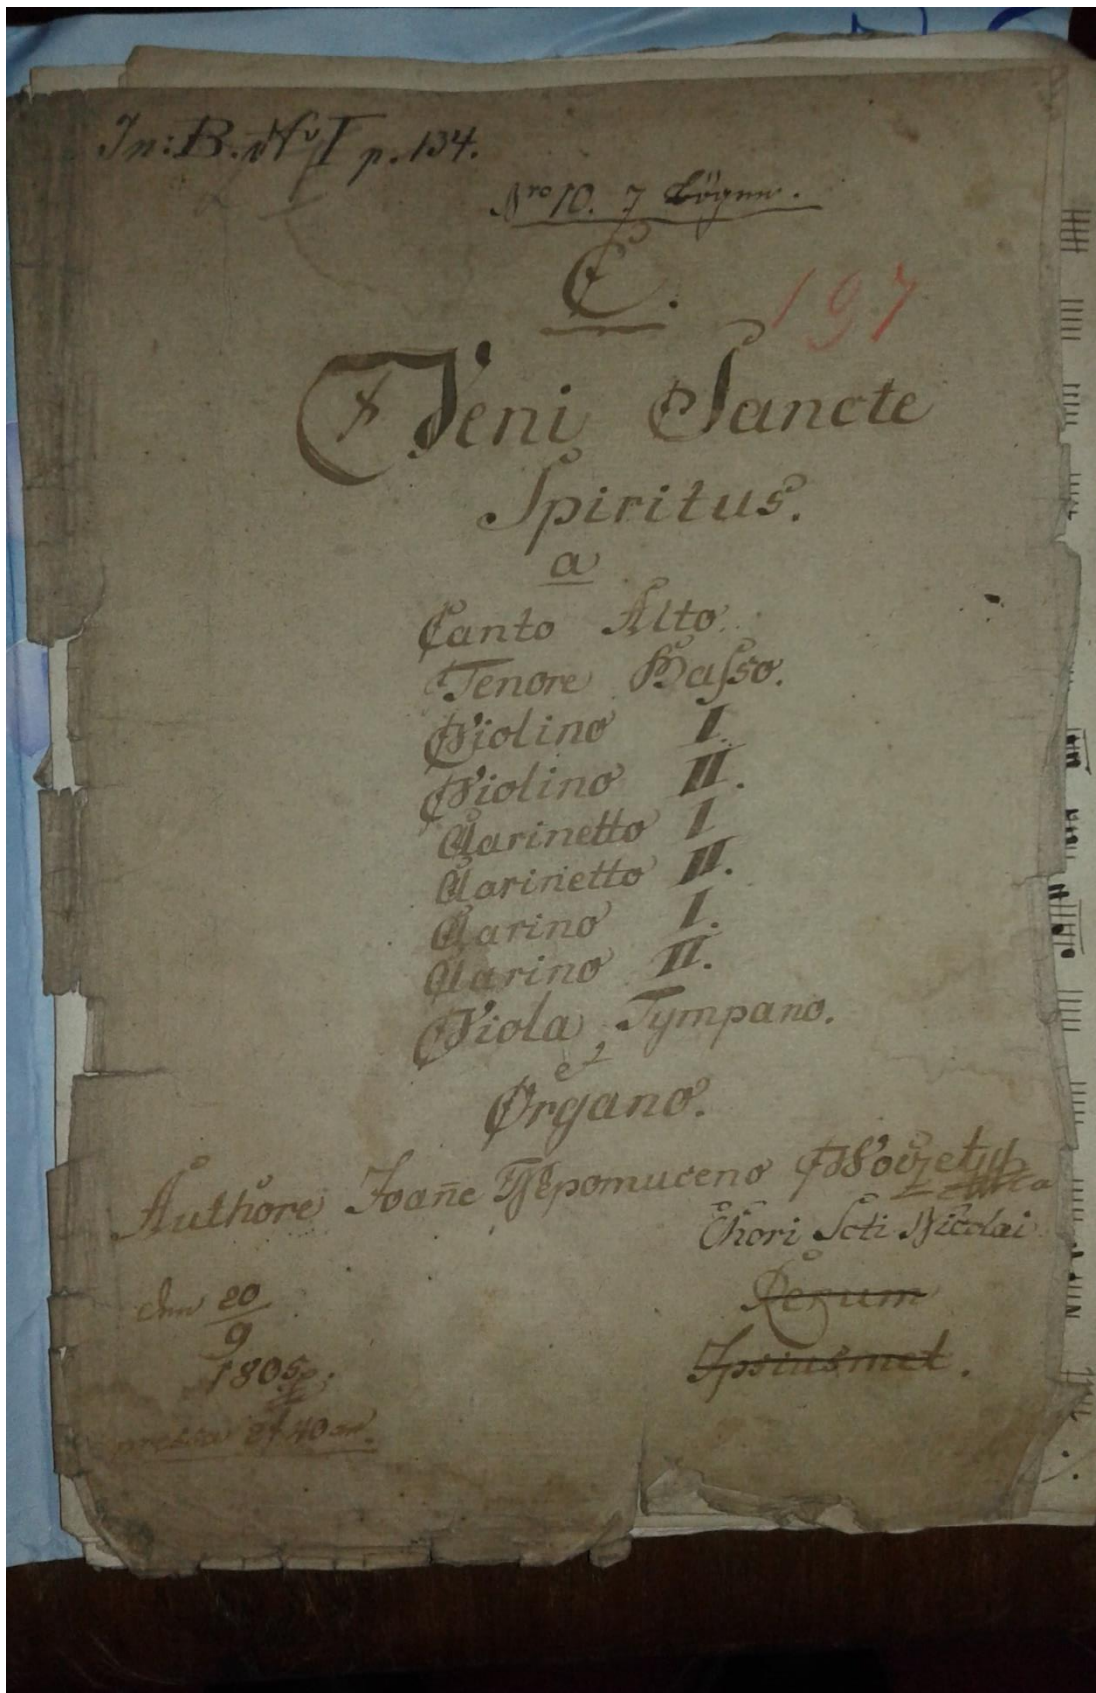 In: B. No I p. 134.
Nro 10. 7 Bögen.
C.
197
Veni Sancte
Spiritus.
a
Canto Alto
Tenore Baſso.
Violino I.
Violino II.
Clarinetto I
Clarinetto II.
Clarino I.
Clarino II.
Viola, Tympano.
et
Organo.
Authore Joan̄e Nepomuceno
Chori Scti Nicolai
Rerum
Ipsiusmet.
den 20
9
1805